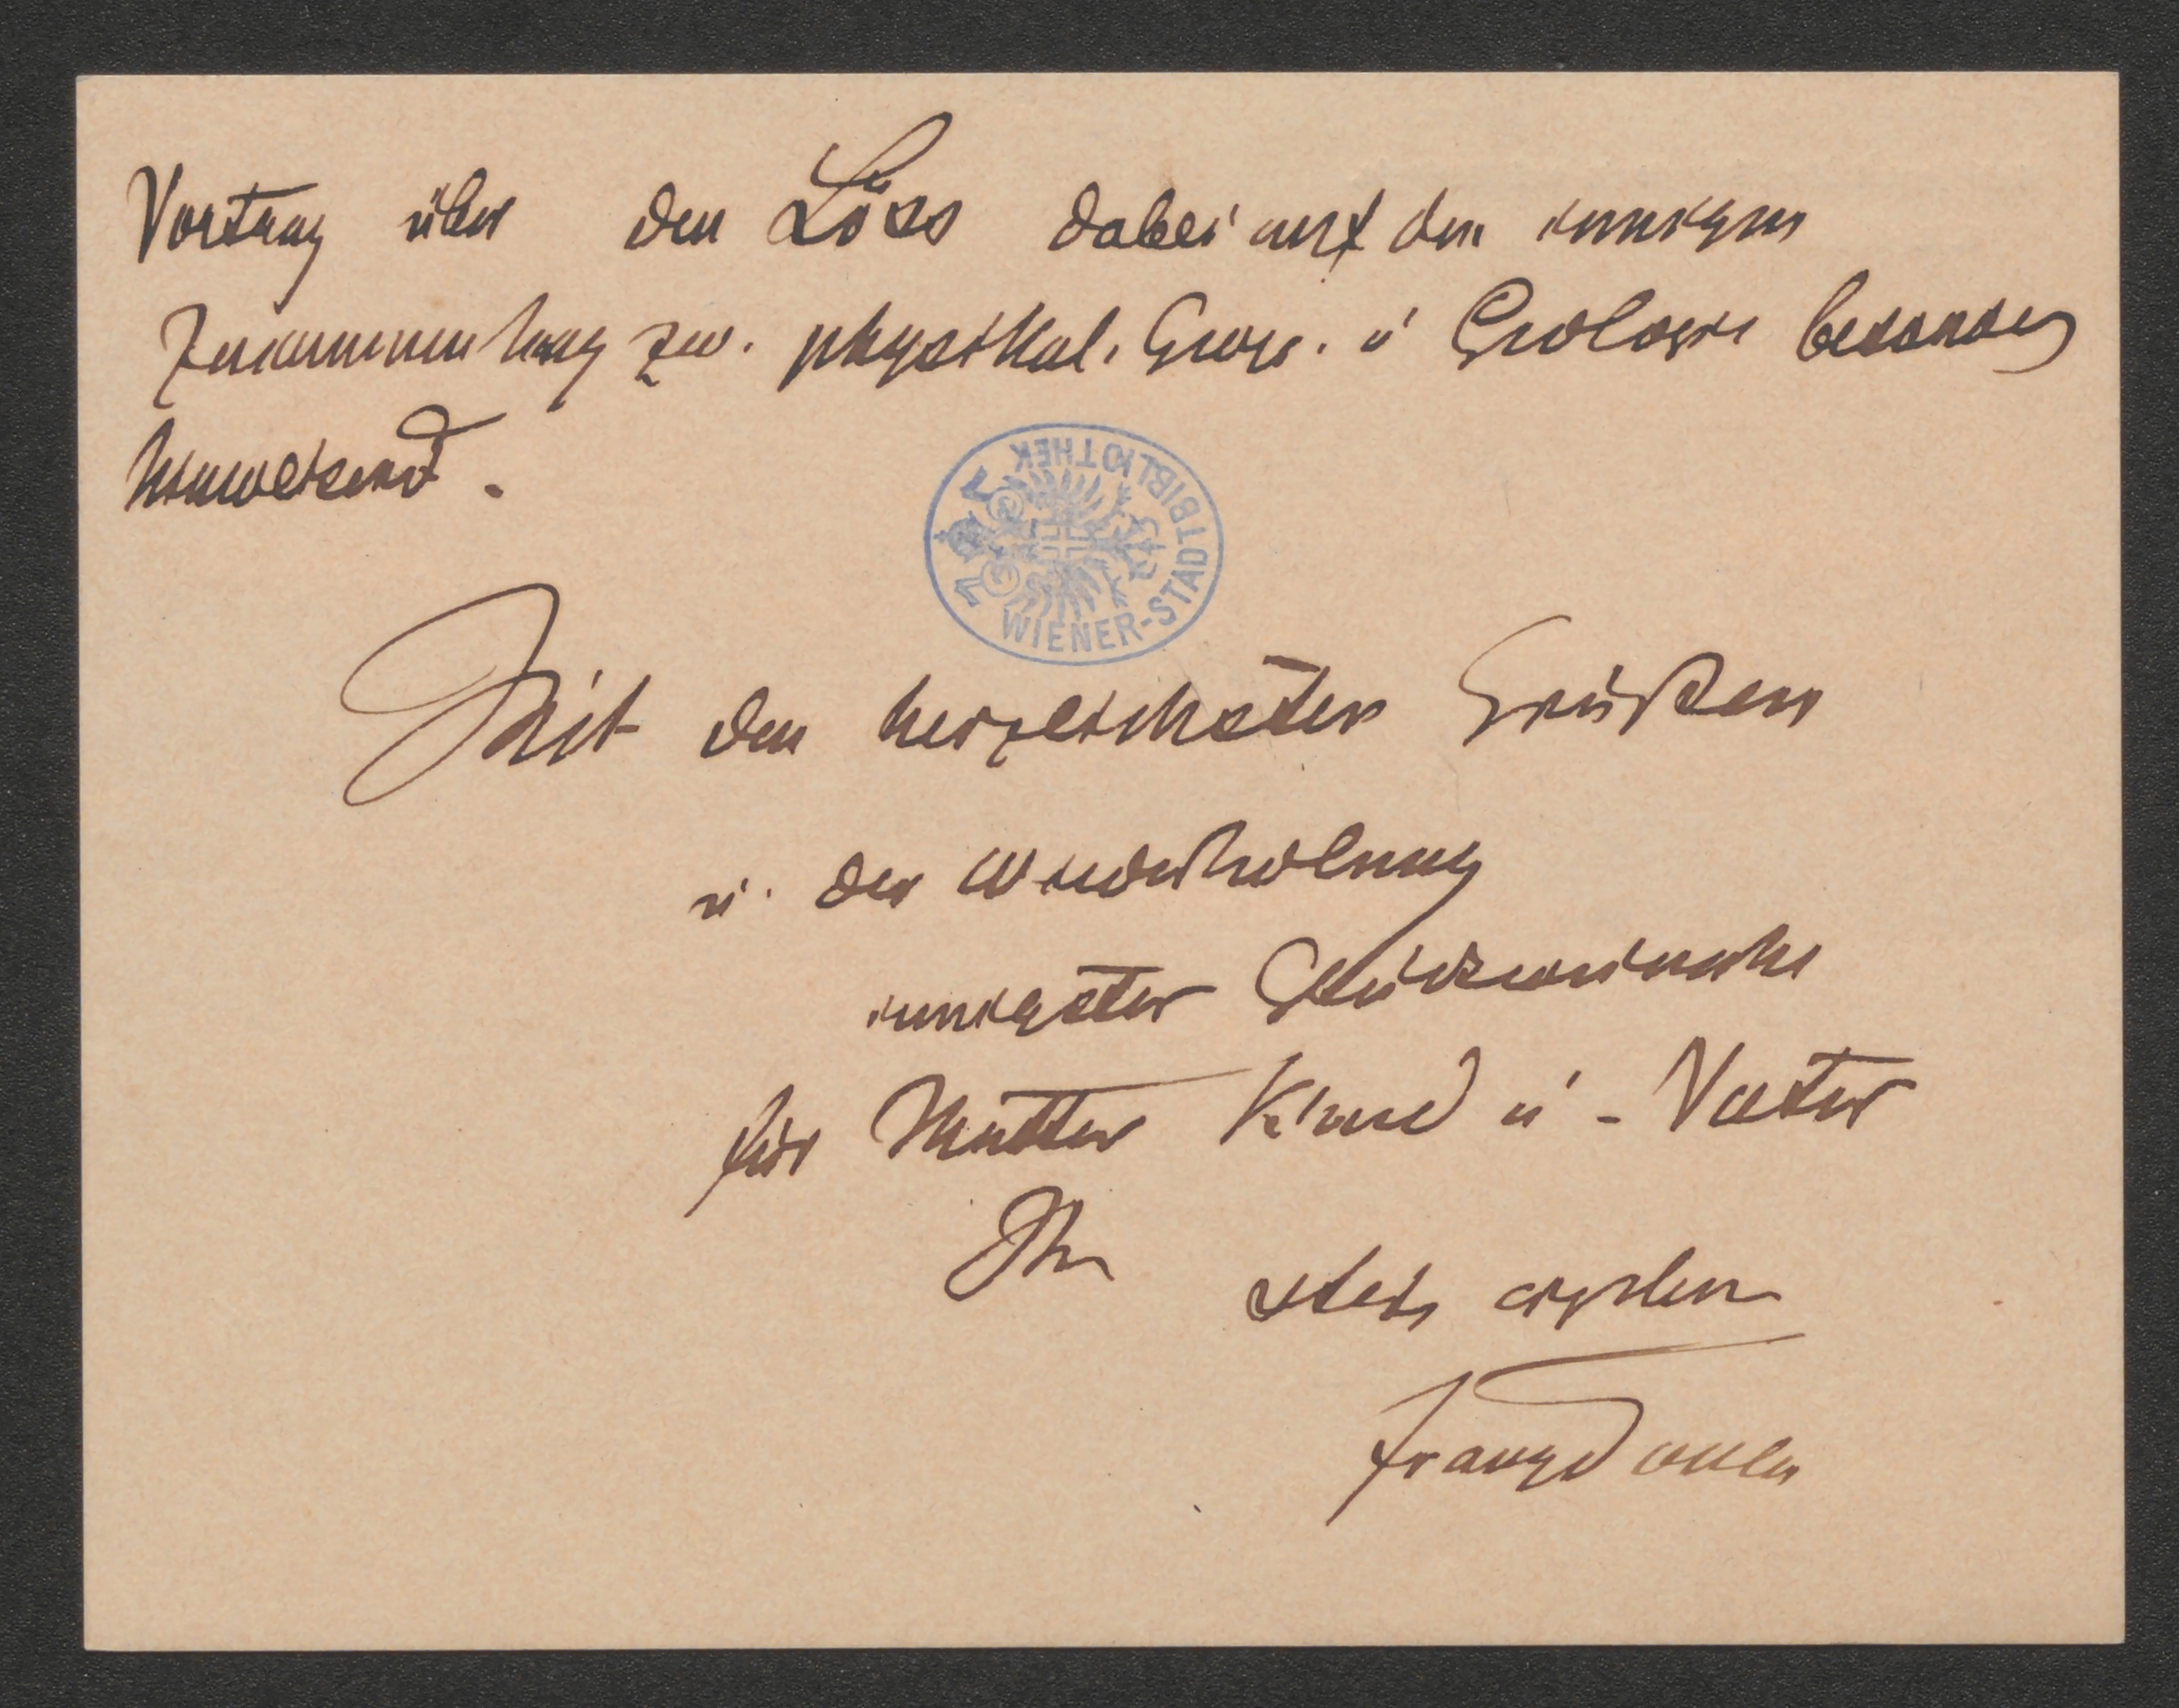 Vortrag über den Löss dabei auf den innigen
Zusammenhang zw. physikal. Geogr. u Geologie besonders
hinweisend.
WIENER-STADTBIBLIOTHEK
Mit den herzlichsten Grüßen
u. der Wiederholung
innigster Glückwünsche
für Mutter Kind u - Vater
Ihr stets ergeben
Franz Toula